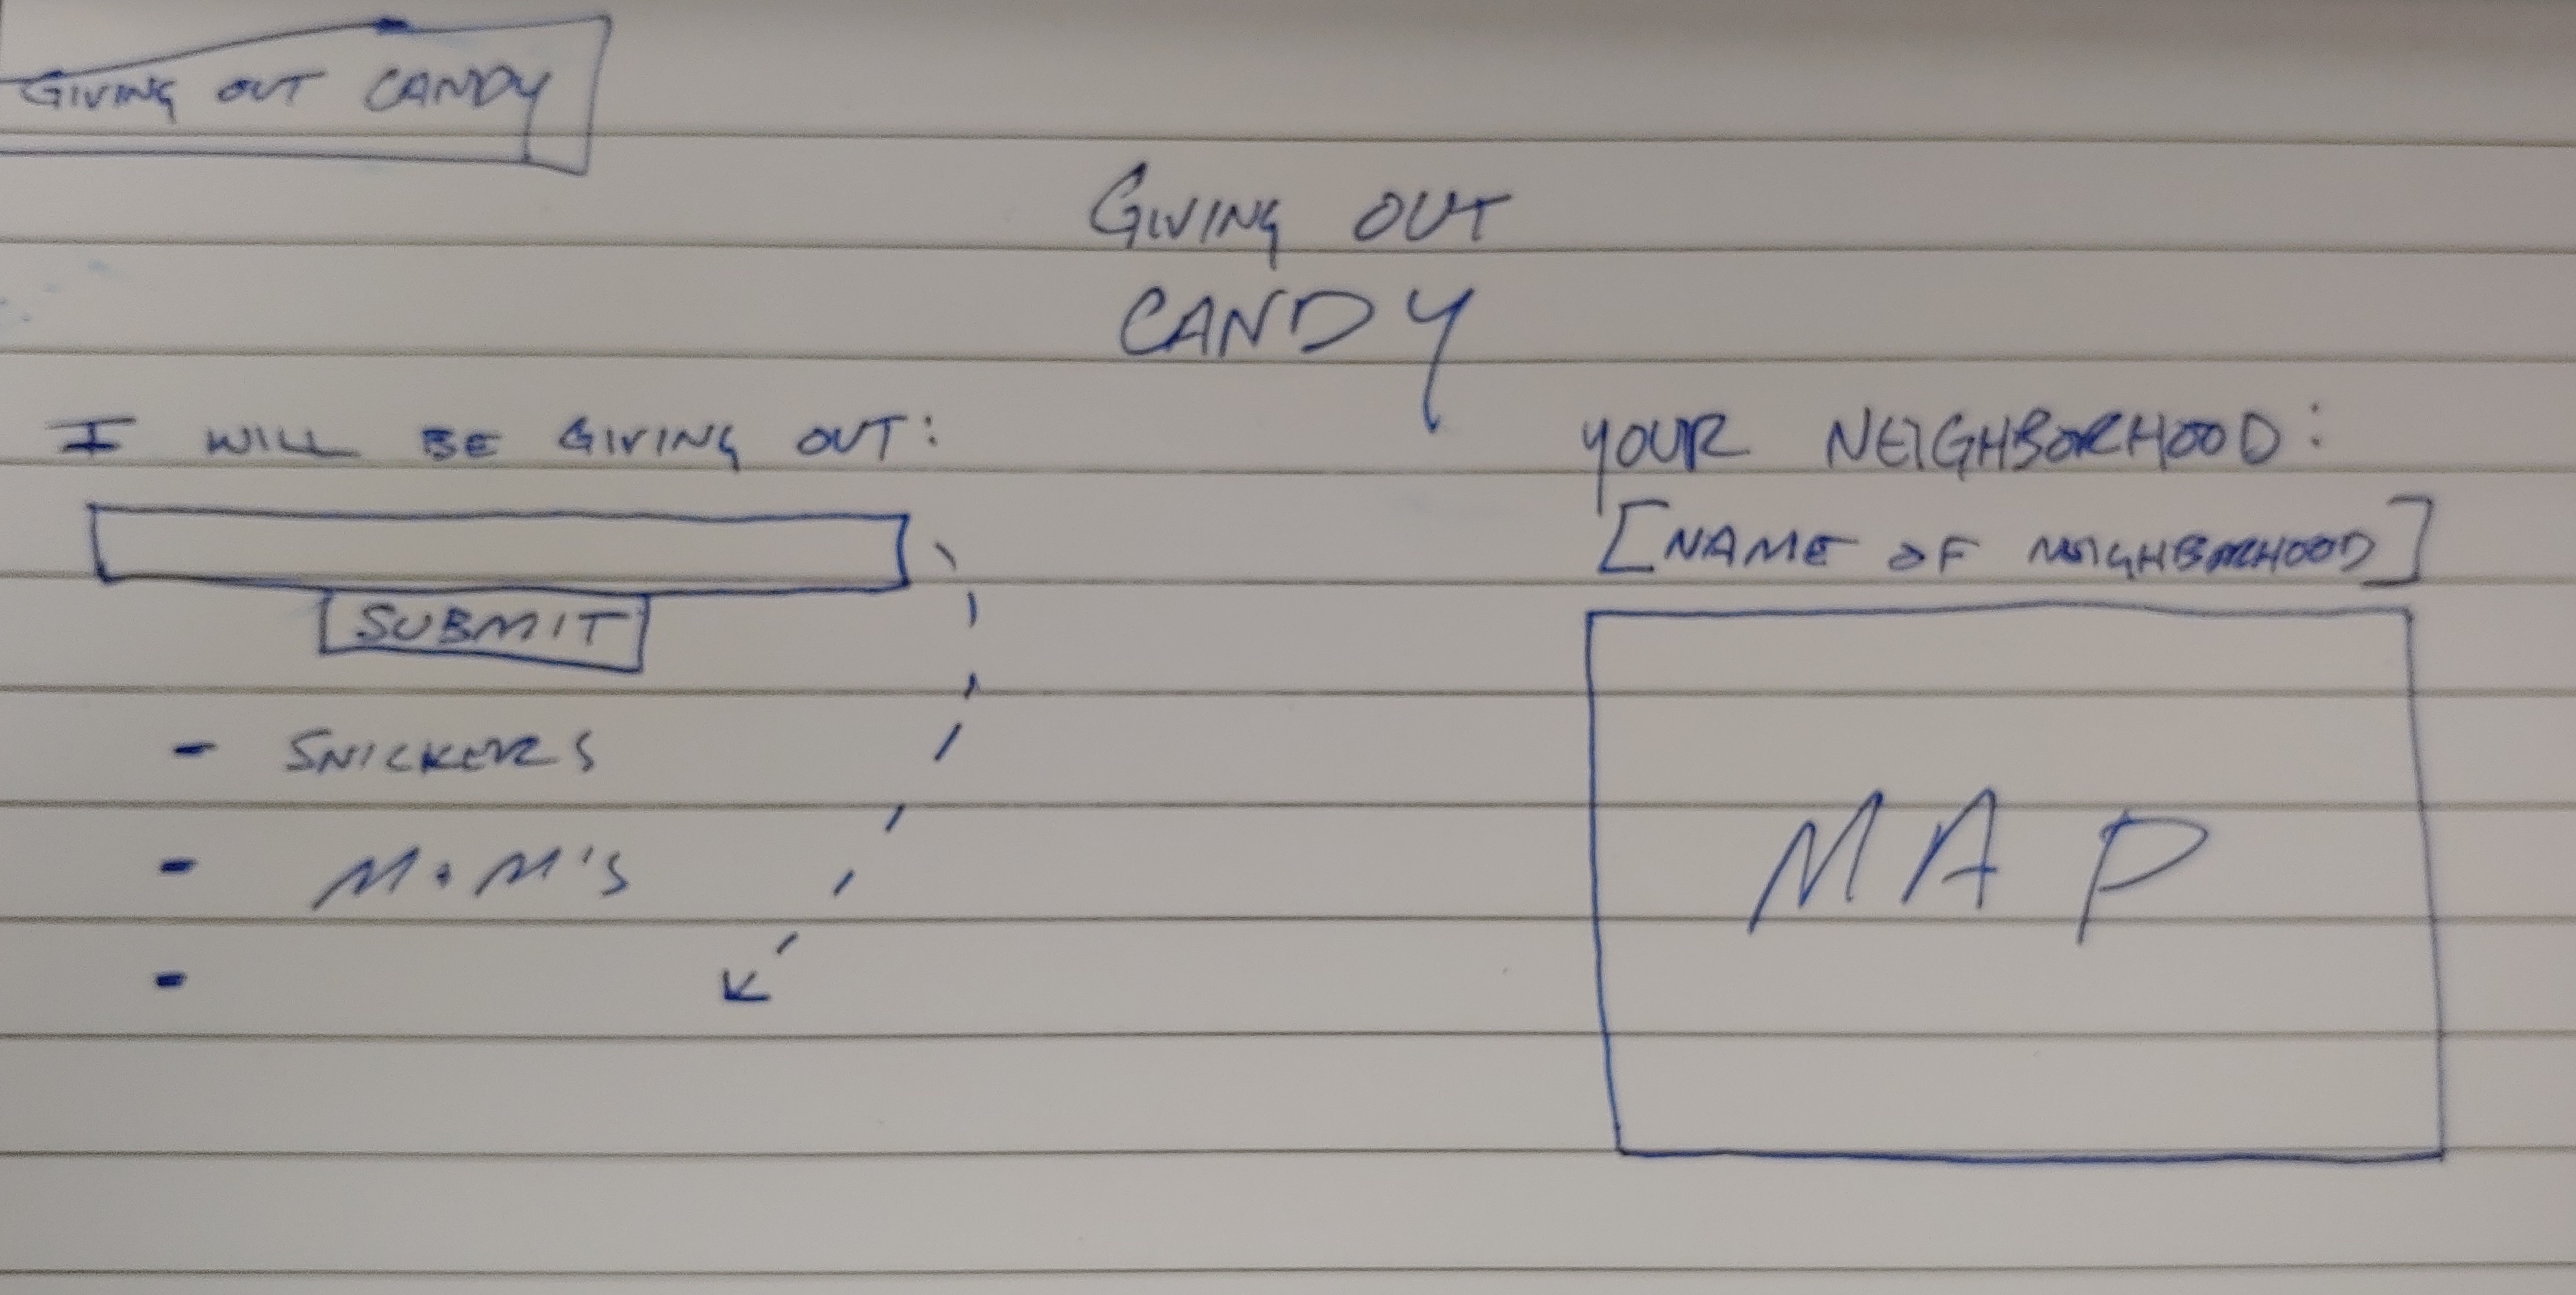 GIVING OUT CANDY
GIVING OUT
CANDY
I WILL BE GIVING OUT:
SUBMIT
- SNICKERS
- M+M'S
-
YOUR NEIGHBORHOOD:
[NAME OF NEIGHBORHOOD]
MAP